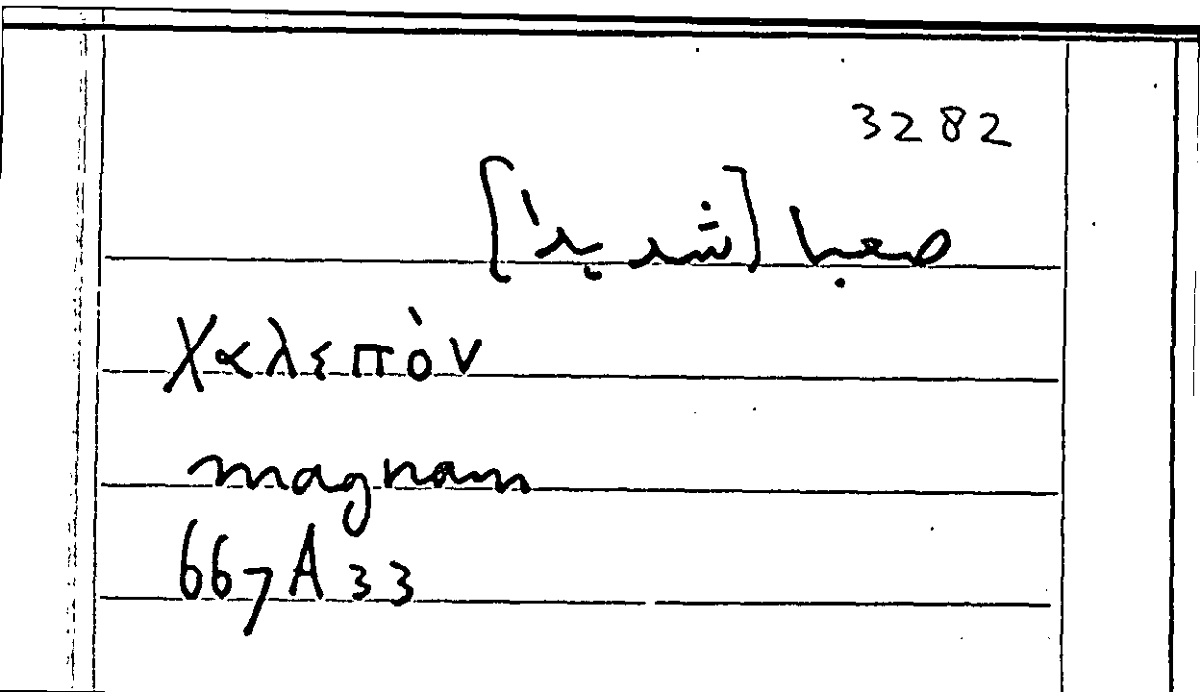 3282
صعبا [شديدا]
χαλεπὸν
magnam
667A33